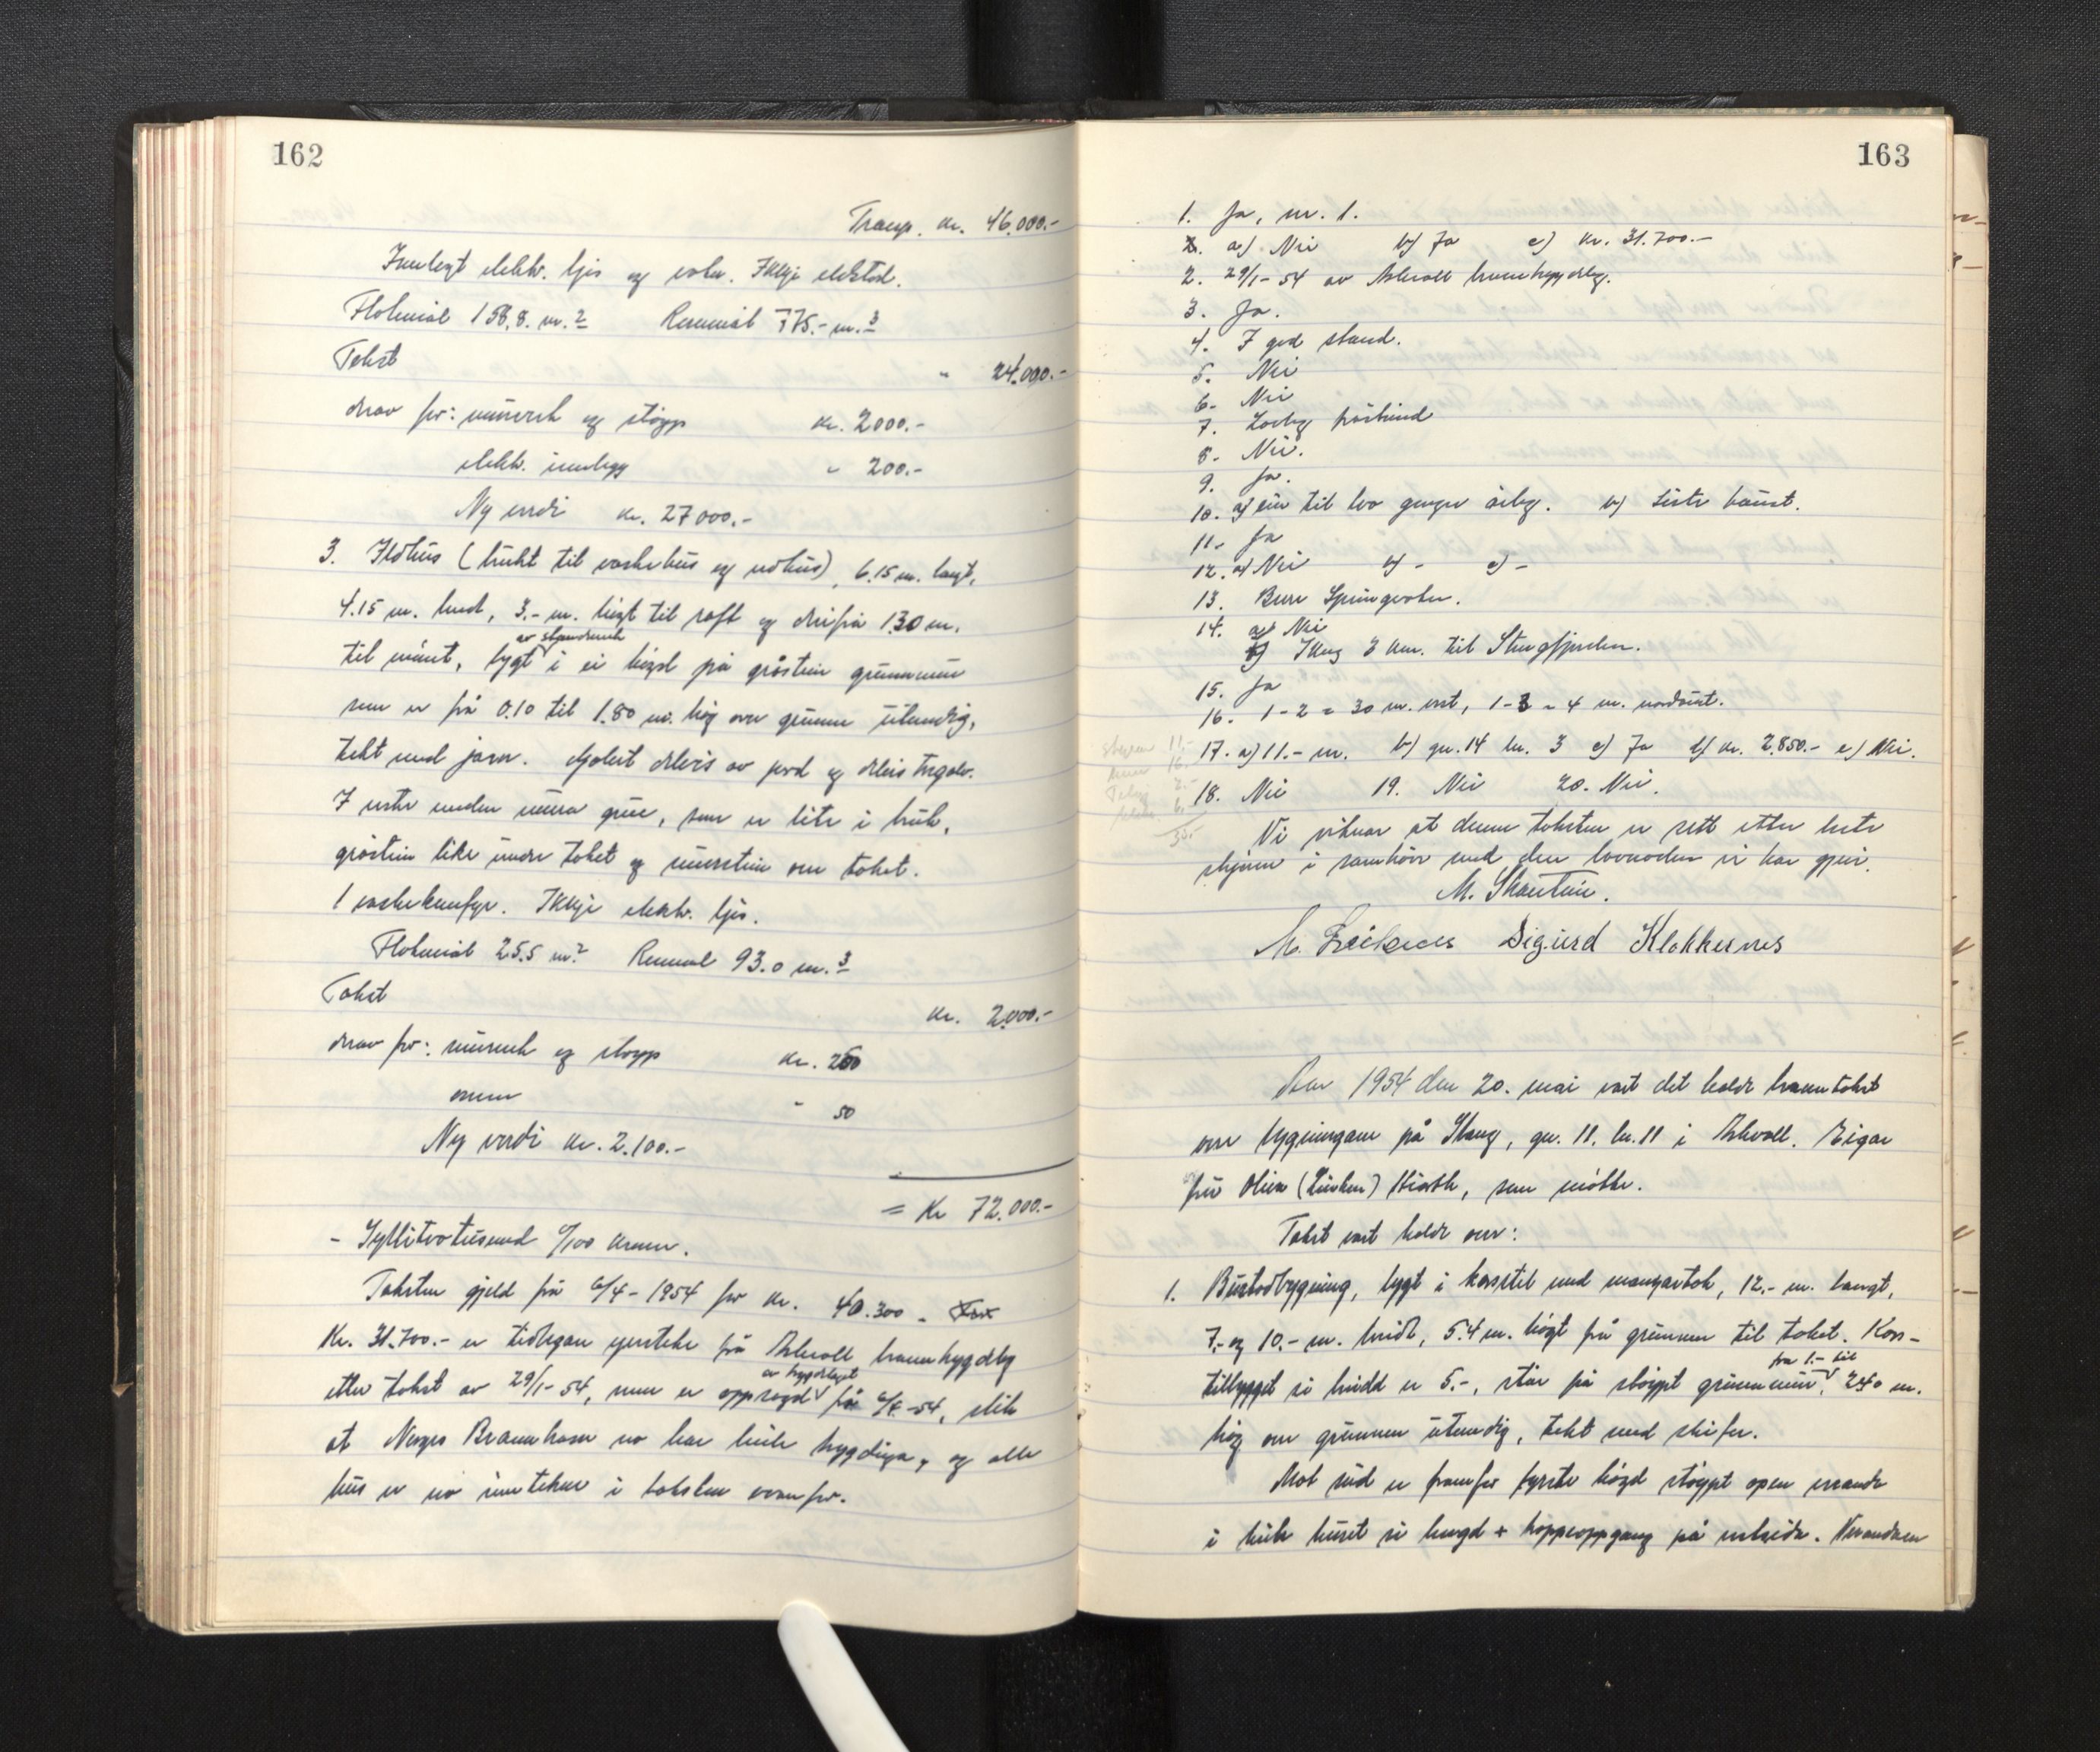 162
Transp. kr. 46.000.-
Innlagt elektr. ljos og vatn. Ikkje elektrod.
Flatemål 158,8. m.2 Rommål 775.- m.3
Takst " 24.000.-
derav for: murverk og støyp kr. 2000.-
elektr. innlegg " 200.-
Ny verdi kr. 27000.-
3. Eldhus (brukt til vaskehus og vedhus), 6.15 m. langt,
4.15 m. breidt, 3.- m. høgt til raft og derifrå 1.30 m.
til mønet, bygt i ei høgd på gråstein grunnmur
av stenderverk
som er frå 0.10 til 1.80 m. høg over grunnen utvendig,
tekt med jarn. Golvet delvis av jord og delvis tregolv.
I vestre enden mura grue, som er lite i bruk,
gråstein like under taket og murstein over taket.
1 vaskekomfyr. Ikkje elektr. ljos.
Flatemål 25.5 m2 Rommål 93.0 m.3
Takst kr. 2.000.-
derav for: murverk og støyp kr. 200
omn " 50
Ny verdi kr. 2.100.-
= Kr 72.000.-
- Syttitvotusund 0/100 kroner.
Taksten gjeld frå 6/4-1954 for kr. 40.300 -
Kr. 31.700.- er tidlegare i Askvoll branntrygdelag
etter takst av 29/1-54, men er oppsagd frå 6/4-54, slik
av trygdelaget
at Norges Brannkasse no har heile trygdinga, og alle
hus er no inntekne i taksten ovanfor.
163
1. Ja, nr. 1.
2. a) Nei b) Ja c) kr. 31.700.-
2. 29/1-54 av Askvoll branntrygdelag.
3. Ja.
4. I god stand.
5. Nei
6. Nei
7. Lovleg påbunde
8. Nei.
9. Ja.
10. a) ein til två gonger årleg. b) Siste haust.
11. Ja
12. a) Nei b) - c) -
13. Berre Springvatn.
14. a) Nei
b) Ikring 3 km. til Stongfjorden.
15. Ja
16. 1-2 = 30 m. vest, 1-3 = 4 m. nordaust.
17. a) 11.- m. b) gn. 14 bn. 3 c) Ja d) kr. 2.850.- e) Nei.
18. Nei 19. Nei 20. Nei.
Vi vitnar at denne taksten er sett etter beste
skjønn i samhøve med den lovnaden vi har gjeve.
M. Sigurd Klokkernes
Året 1954 den 20. mai vart det halde branntakst
over bygningane på Stang, gn. 11. bn. 11 i Askvoll. Eigar
fru Olina som møtte.
Takst vart halde over:
1. Bustadbygning, bygt i korsstil med mansardtak, 12.- m. langt,
7.- og 10.- m. breidt, 5.4 m. høgt frå grunnen til taket. Kors-
tilbygget si breidd er 5.-, står på støypt grunnmur, 2.40 m.
fra 1.- til
høg over grunnen utvendig, tekt med skifer.
Mot sud er framfor fyrste høgd støypt open veranda
i heile huset si lengd + trappeoppgang på vestsida. Verandaen